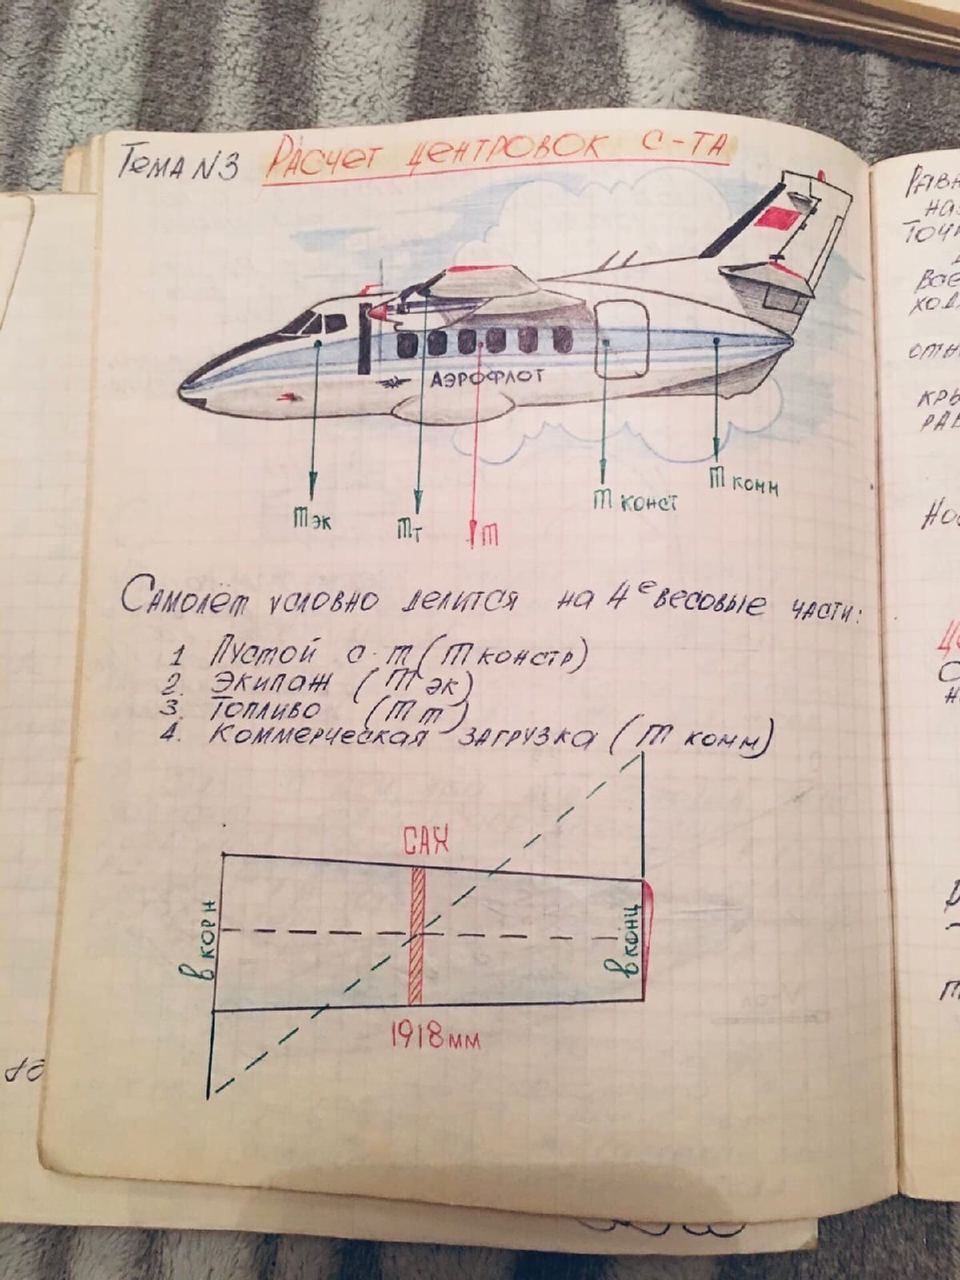 Тема N3 Расчет центровок с-та
АЭРОФЛОТ
m эк
m т
m
m конст
m комм
Самолёт условно делится на 4е весовые части:
1 Пустой с-т (m констр)
2. Экипаж (m эк)
3. Топливо (m т)
4. Коммерческая загрузка (m комм)
САХ
в корн
в конц
1918 мм
Равн
на
точк
все
ход
отн
кры
рав
Но